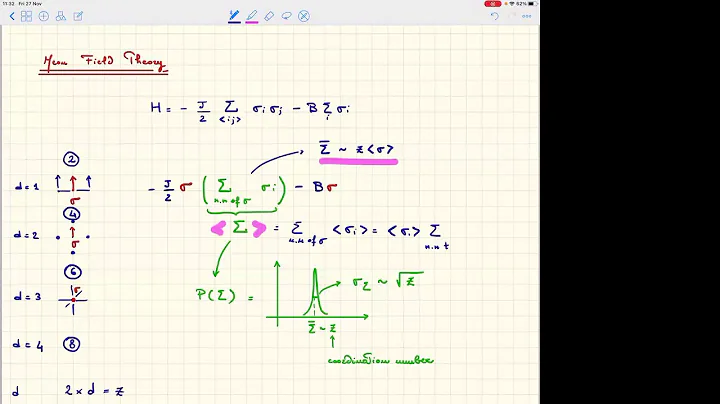 11:32 Fri 27 Nov
62%
Mean Field Theory
H = - J/2 Σ_<ij> σi σj - B Σ_i σi
Σ̄ ~ z<σ>
- J/2 σ ( Σ_{n.n of σ} σi ) - Bσ
<Σ> = Σ_{n.n of σ} <σi> = <σi> Σ_{n.n t}
P(Σ) =
σ_Σ ~ √z
Σ̄ ~ z
coordination number
②
d=1
σ
④
d=2
σ
⑥
d=3
σ
d=4 ⑧
d 2 × d = z